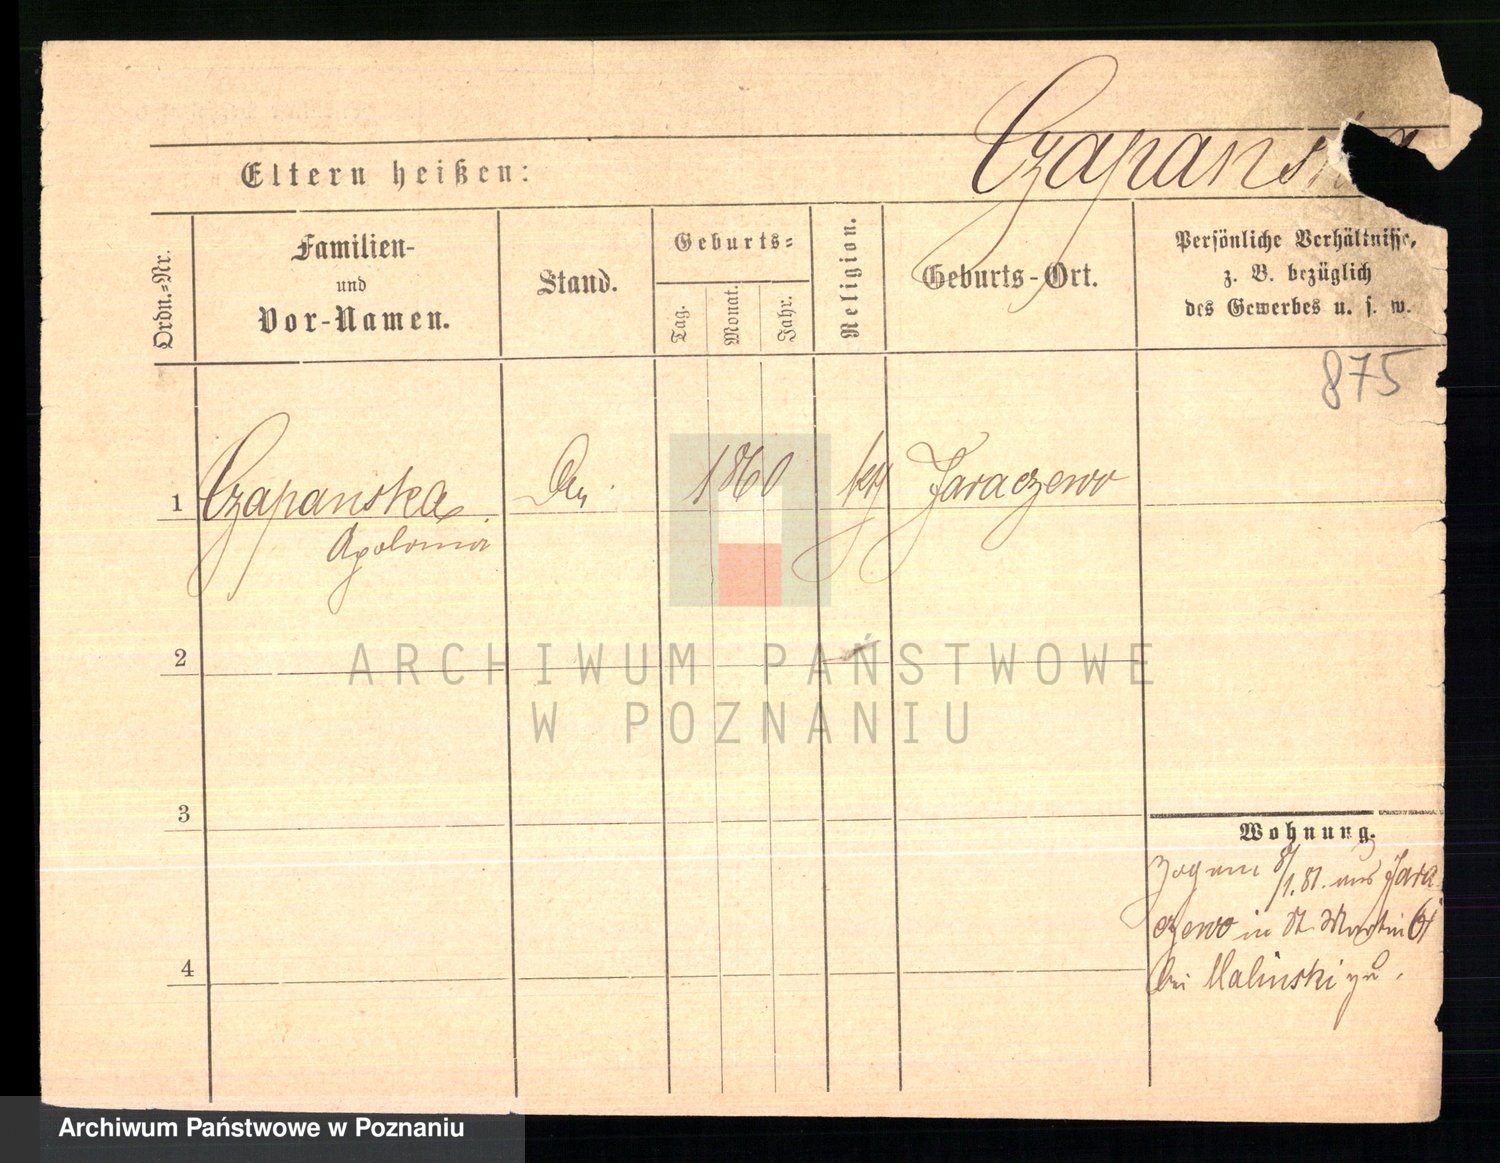 Czapanska
Eltern heißen:
Ordn.-Nr.
Familien-
und
Vor-Namen.
Stand.
Geburts-
Tag.
Monat.
Jahr.
Religion.
Geburts-Ort.
Persönliche Verhältnisse,
z. B. bezüglich
des Gewerbes u. s. w.
875
1 Czapanska 1860 kth Jaraczewo
Apolonia
2
ARCHIWUM PAŃSTWOWE
W POZNANIU
3
Wohnung.
Zog am 8/1.81. aus Jara
czewo in St. Martin 61
bei Malinski zu.
4
Archiwum Państwowe w Poznaniu